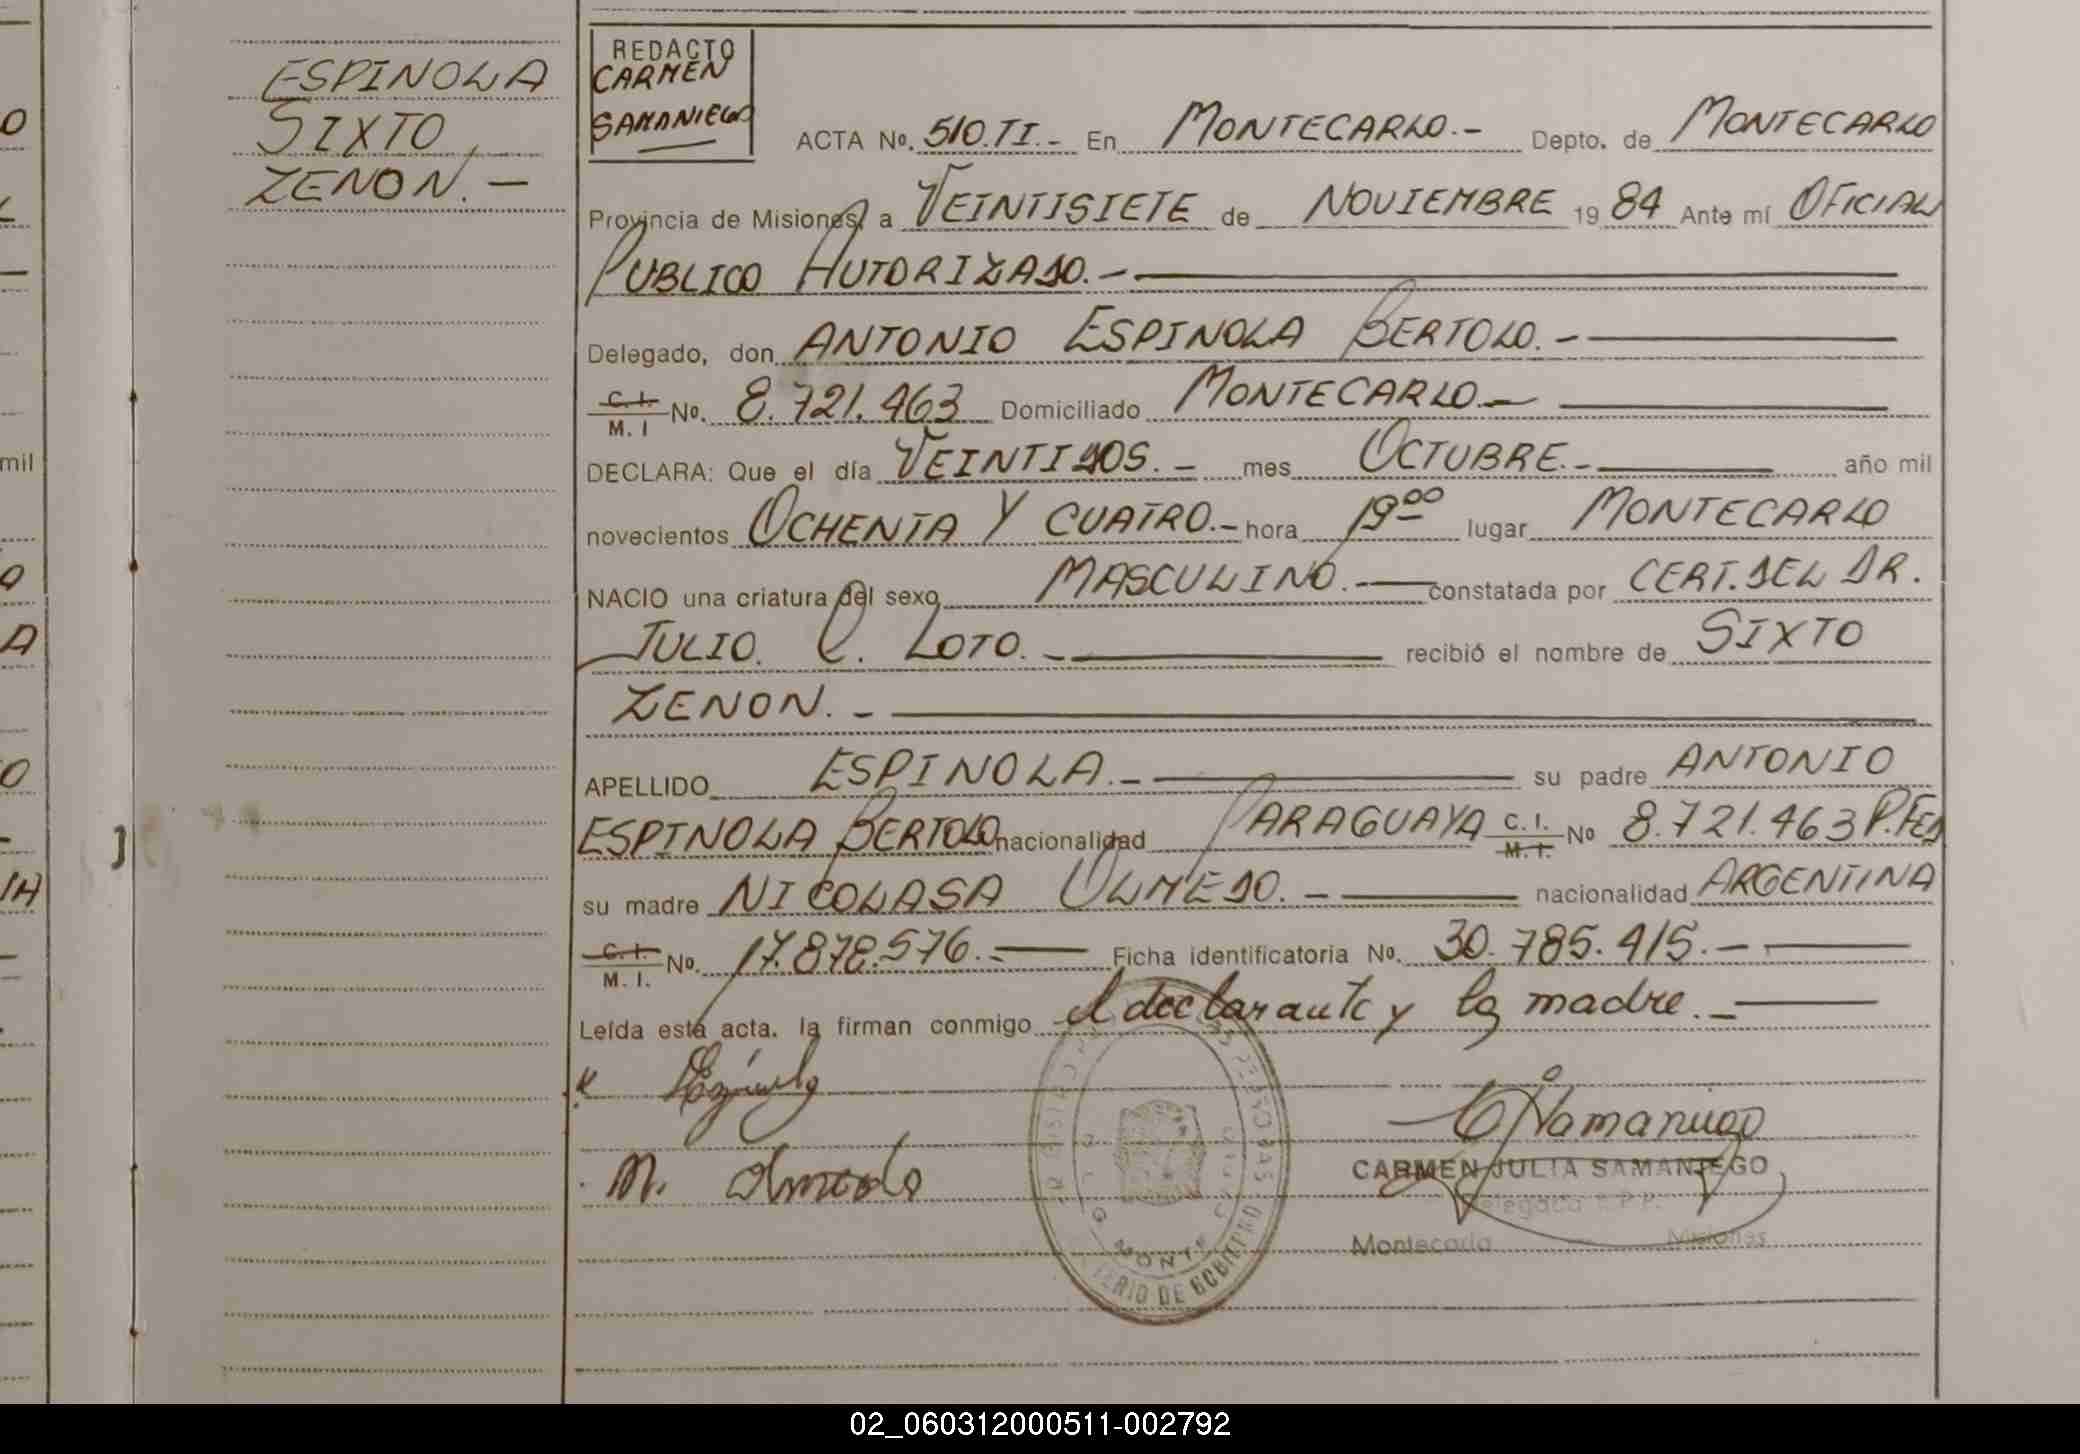 ESPINOLA
SIXTO
ZENON. —
REDACTO
CARMEN
SAMANIEGO
ACTA No. 510.TI.- En MONTECARLO.- Depto. de MONTECARLO
Provincia de Misiones, a VEINTISIETE de NOVIEMBRE 1984 Ante mí OFICIAL
PUBLICO AUTORIZADO.-
Delegado, don ANTONIO ESPINOLA BERTOLO.-
C. I. M. I No. 8.721.463 Domiciliado MONTECARLO.-
DECLARA: Que el día VEINTIDOS.- mes OCTUBRE.- año mil
novecientos OCHENTA Y CUATRO.- hora 19⁰⁰ lugar MONTECARLO
NACIO una criatura del sexo MASCULINO.- constatada por CERT.DEL DR.
JULIO. C. LOTO.- recibió el nombre de SIXTO
ZENON.-
APELLIDO ESPINOLA.- su padre ANTONIO
ESPINOLA BERTOLO nacionalidad PARAGUAYA C. I. M. I. No 8.721.463 P.FED
su madre NICOLASA OLMEDO.- nacionalidad ARGENTINA
C. I. M. I. No. 17.878.576.- Ficha identificatoria No. 30.785.415.-
Leída esta acta. la firman conmigo el declarante y la madre.-
N. Olmedo
C J Samaniego
CARMEN JULIA SAMANIEGO
Delegada
Montecarlo Misiones
MINISTERIO DE GOBIERNO
02_060312000511-002792